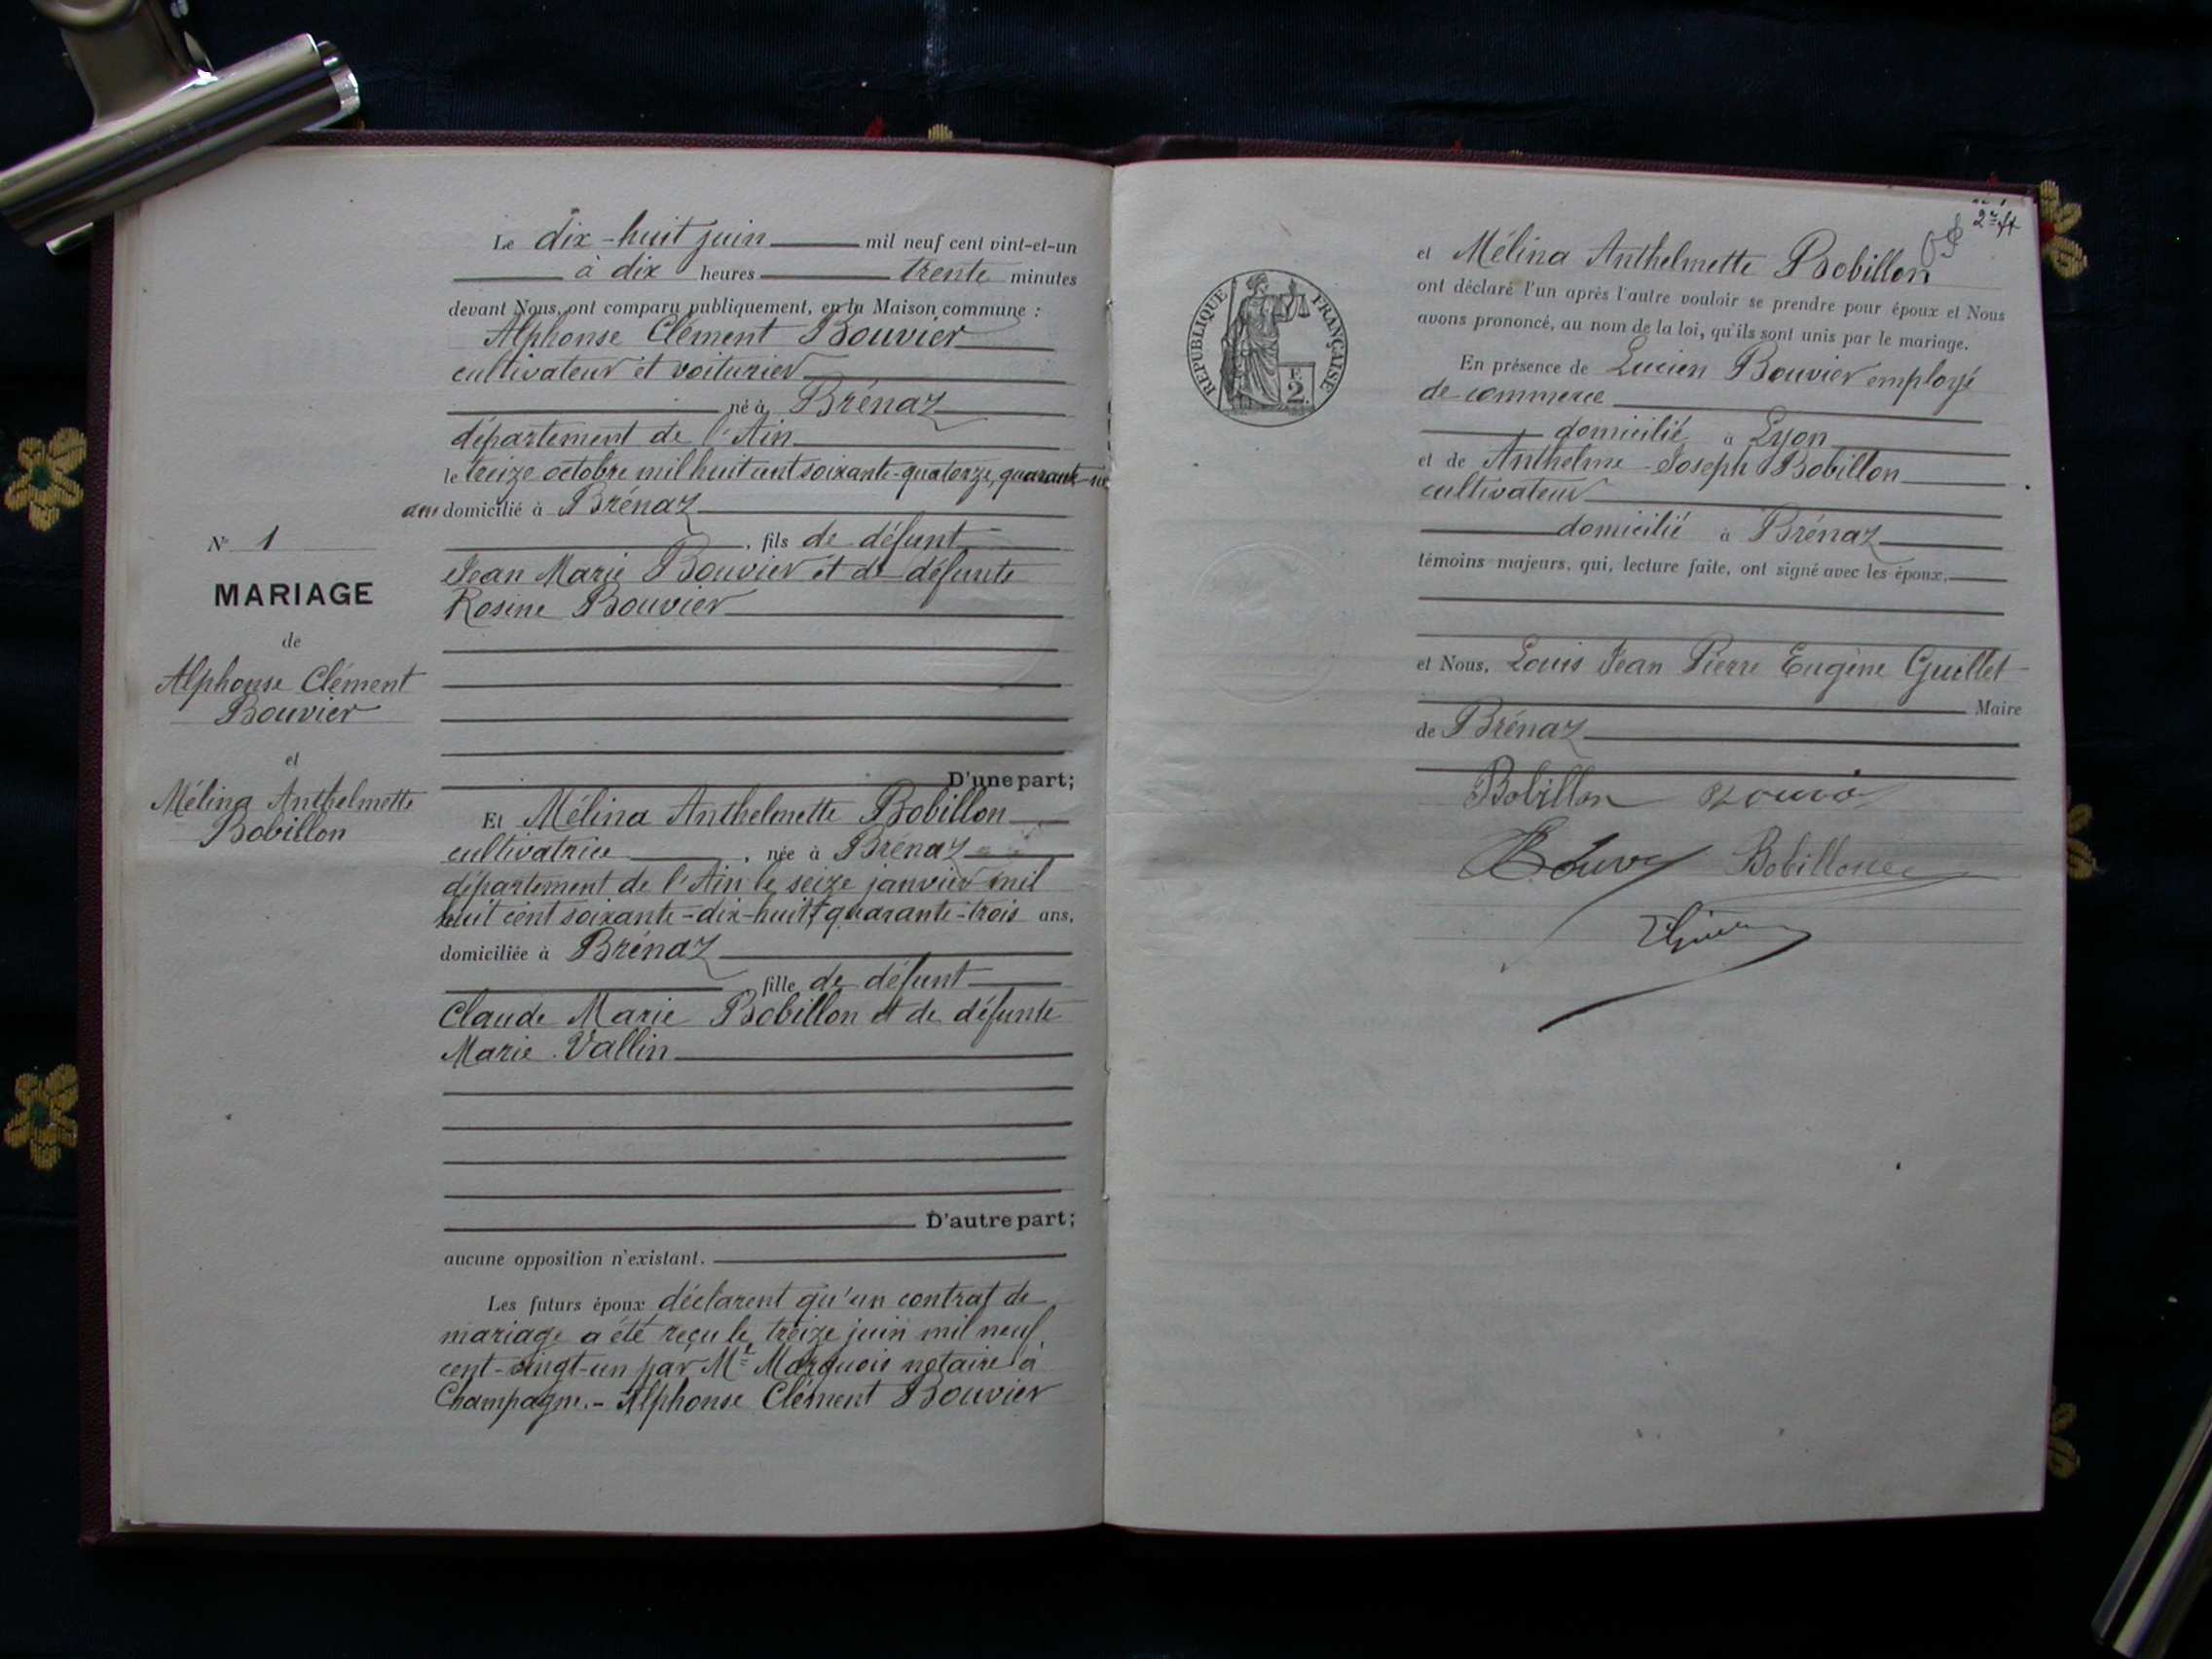 Le dix-huit juin mil neuf cent vint-et-un
à dix heures trente minutes
devant Nous, ont comparu publiquement, en la Maison commune :
Alphonse Clément Bouvier
cultivateur et voiturier
né à Brénaz
département de l'Ain
le treize octobre mil huit cent soixante-quatorze, quarante-six
ans domicilié à Brénaz
, fils de défunt
Jean Marie Bouvier et de défunte
Rosine Bouvier
D'une part;
Et Mélina Anthelmette Bobillon
cultivatrice , née à Brénaz
département de l'Ain le seize janvier mil
huit cent soixante-dix-huit, quarante-trois ans,
domiciliée à Brénaz
fille de défunt
Claude Marie Bobillon et de défunte
Marie Vallin
D'autre part;
aucune opposition n'existant.
Les futurs époux déclarent qu'un contrat de
mariage a été reçu le treize juin mil neuf
cent-vingt-un par Me Marquois notaire à
Champagne.- Alphonse Clément Bouvier
N° 1
MARIAGE
de
Alphonse Clément
Bouvier
et
Mélina Anthelmette
Bobillon
2
RÉPUBLIQUE FRANÇAISE
F.
2.
et Mélina Anthelmette Bobillon
ont déclaré l'un après l'autre vouloir se prendre pour époux et Nous
avons prononcé, au nom de la loi, qu'ils sont unis par le mariage.
En présence de Lucien Bouvier employé
de commerce
domicilié à Lyon
et de Anthelme Joseph Bobillon
cultivateur
domicilié à Brénaz
témoins majeurs, qui, lecture faite, ont signé avec les époux.
et Nous, Louis Jean Pierre Eugène Guillet
Maire
de Brénaz
Bobillon
Bobillon